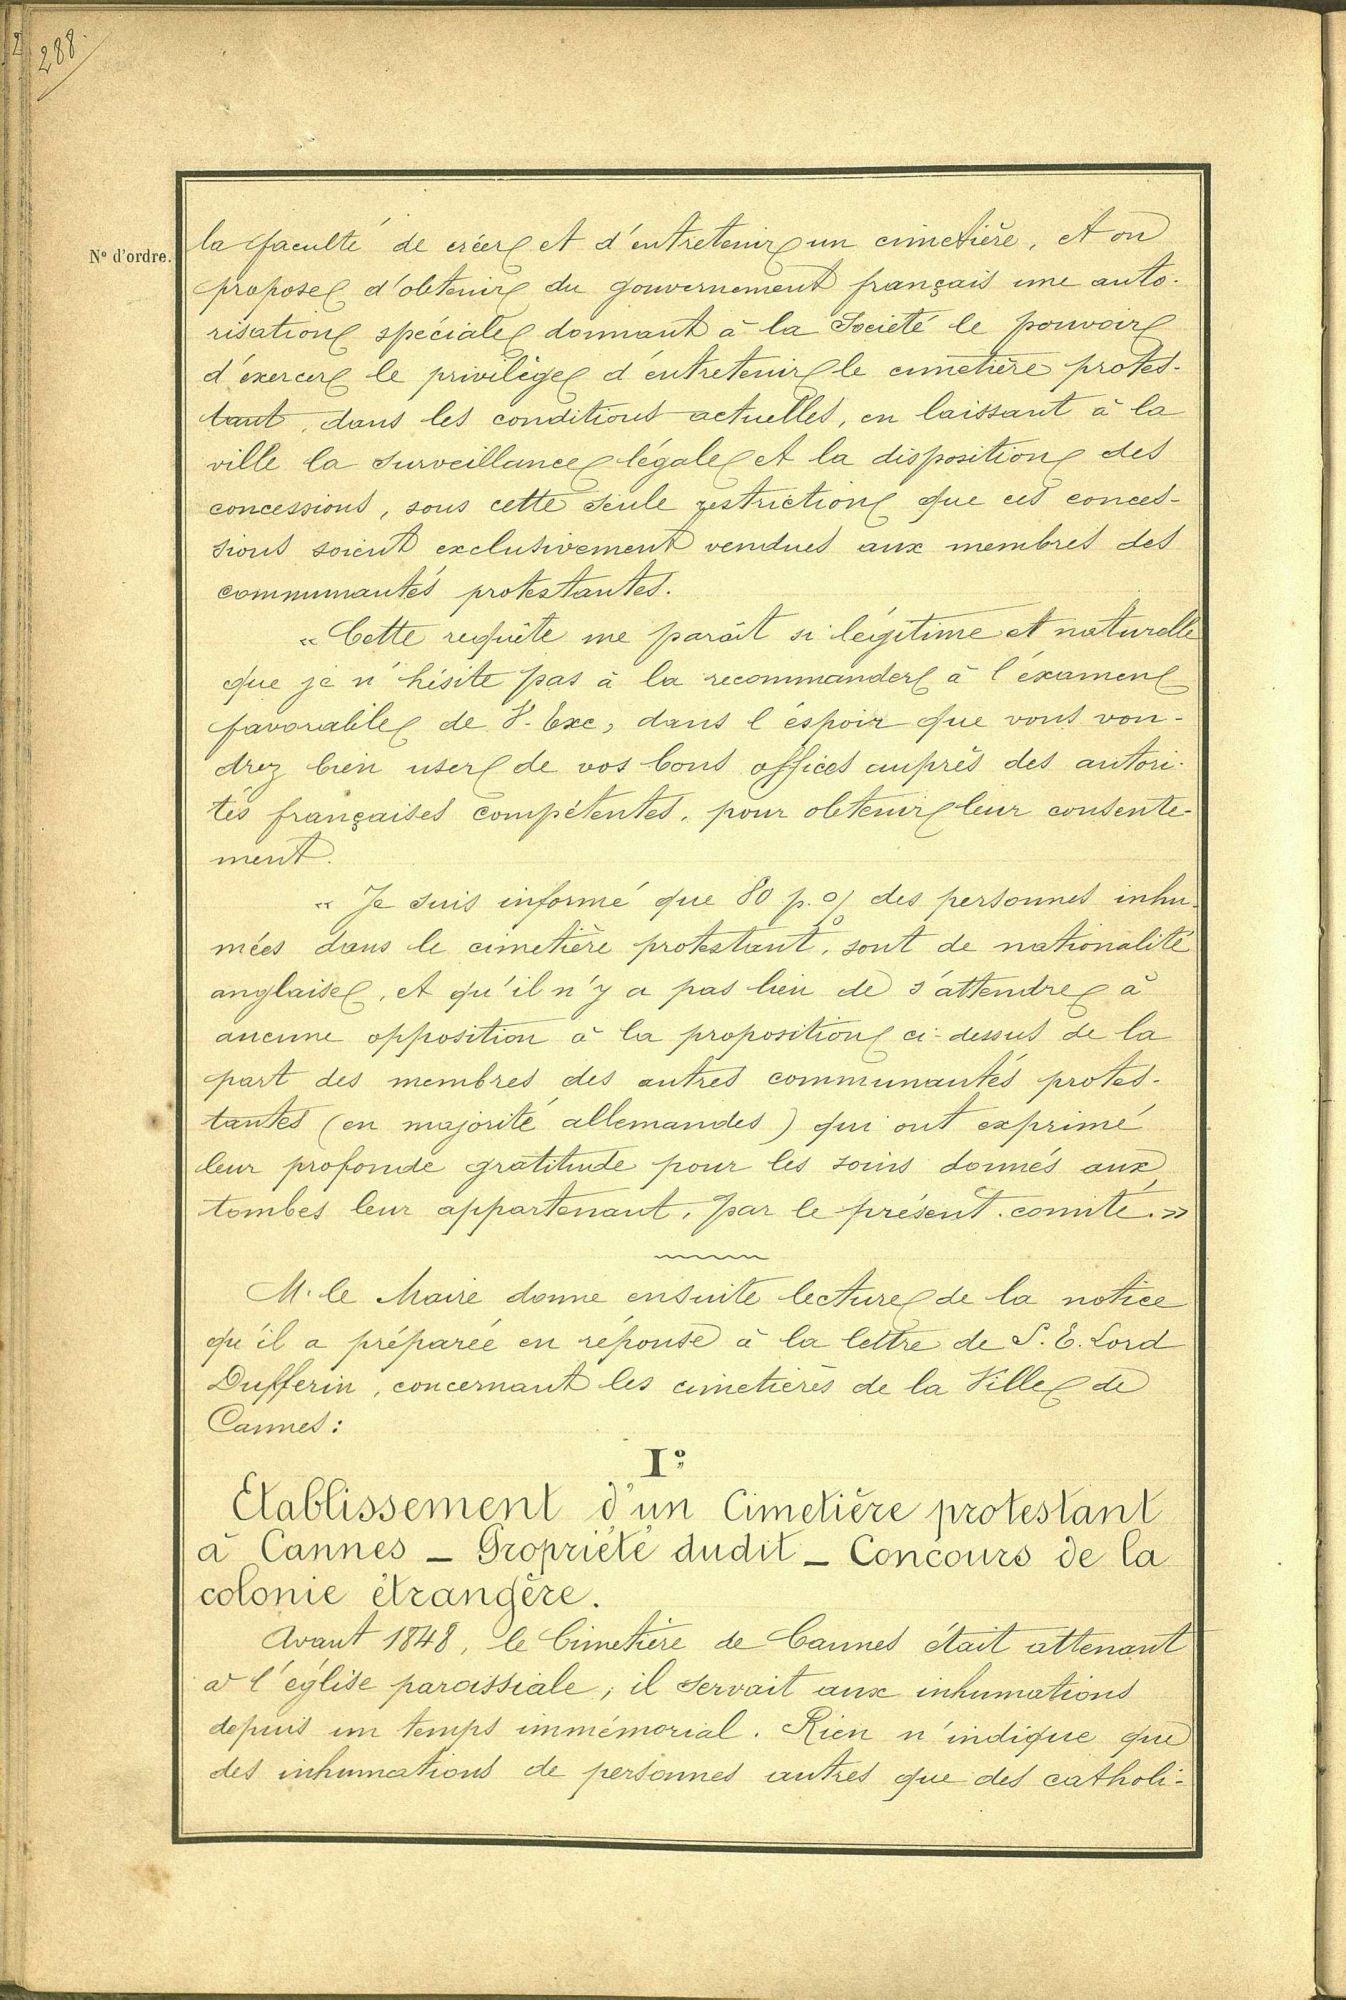 288.
N° d'ordre.
la faculté de créer et d'entretenir un cimetière, et on
propose d'obtenir du gouvernement français une auto-
risation spéciale donnant à la Société le pouvoir
d'éxercer le privilège d'entretenir le cimetière protes-
tant, dans les conditions actuelles, en laissant à la
ville la surveillance légale et la disposition des
concessions, sous cette seule restriction que ces conces-
sions soient exclusivement vendues aux membres des
communautés protestantes.
« Cette requête me paraît si légitime et naturelle
que je n'hésite pas à la recommander à l'éxamen
favorable de V. Exc, dans l'éspoir que vous vou-
drez bien user de vos bons offices auprès des autori-
tés françaises compétentes, pour obtenir leur consente-
ment.
« Je suis informé que 80 p. % des personnes inhu-
mées dans le cimetière protestant, sont de nationalité
anglaise, et qu'il n'y a pas lieu de s'attendre à
aucune opposition à la proposition ci-dessus de la
part des membres des autres communautés protes-
tantes (en majorité allemandes) qui ont exprimé
leur profonde gratitude pour les soins donnés aux
tombes leur appartenant, par le présent comité. »
M. le Maire donne ensuite lecture de la notice
qu'il a préparée en réponse à la lettre de S. E. Lord
Dufferin, concernant les cimetières de la Ville de
Cannes:
I°
Etablissement d'un Cimetière protestant
à Cannes _ Propriété dudit _ Concours de la
colonie étrangère.
Avant 1848, le Cimetière de Cannes était attenant
à l'église paroissiale; il servait aux inhumations
depuis un temps immémorial. Rien n'indique que
des inhumations de personnes autres que des catholi-